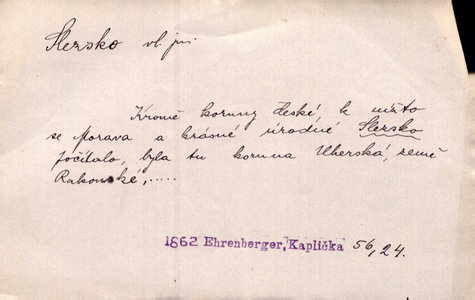 Slezsko vl. jm.
Kromě koruny české, k nížto
se Morava a krásné úrodné Slezsko
počítalo, byla tu koruna Uherská, země
Rakouské,.....
1862 Ehrenberger, Kaplička 56, 24.